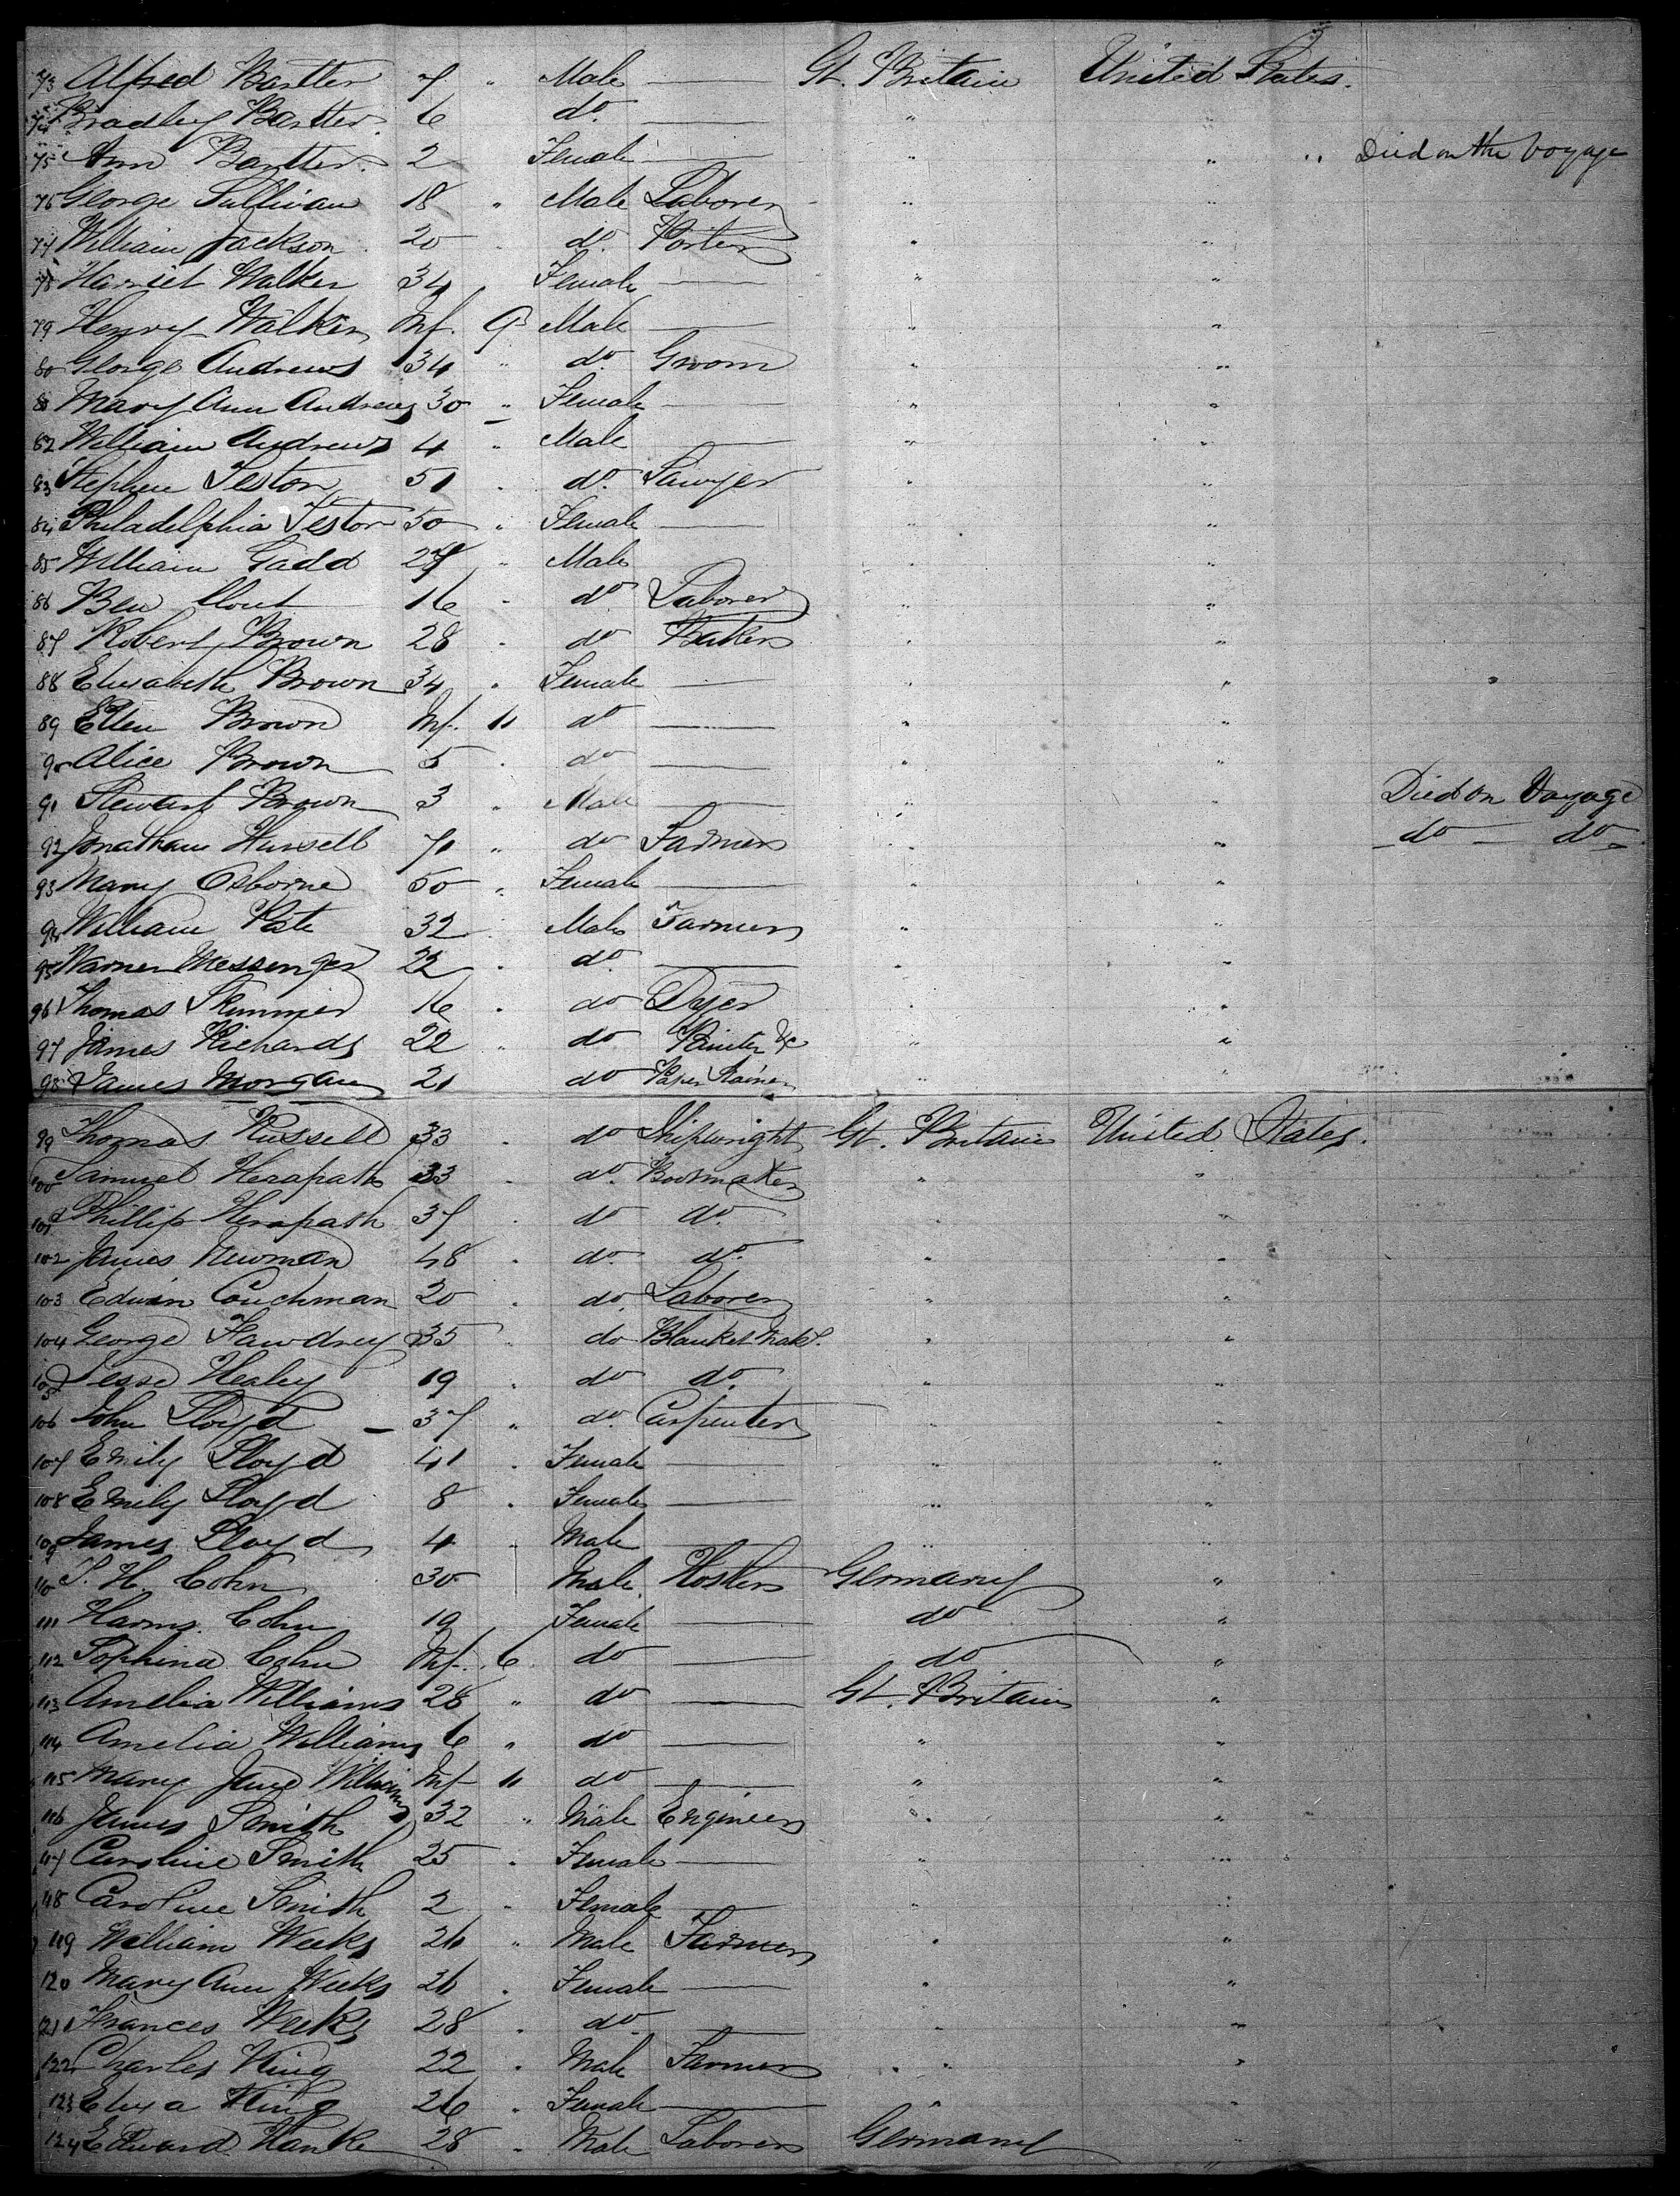 73 Alfred Bartter 7 " Male — Gt. Britain United States.
74 Bradley Bartter. 6 do. — "
75 Ann Bartter. 2 Female — " " " Died on the Voyage
76 George Sullivan 18 " Male Laborer " "
77 William Jackson 20 " do. Porter " "
78 Harriet Walker 34 Female — " "
79 Henry Walker Inf. 9 Male — " "
80 George Andrews 34 " do. Groom " "
81 Mary Ann Andrews 30 " Female — " "
82 William Andrews 4 " Male — " "
83 Stephen Teston 51 " do. Sawyer " "
84 Philadelphia Teston 50 " Female — " "
85 William Gadd 27 " Male " "
86 Ben 16 " do Laborer " "
87 Robert Brown 28 " do Baker " "
88 Elisabeth Brown 34 " Female — " "
89 Ellen Brown Inf. 11 do — " "
90 Alice Brown 5 " do — " "
91 Stewart Brown 3 " Male — " " Died on Voyage
92 Jonathan Hussell 71 " do Farmer " " do — do
93 Mary Osborne 50 " Female — " "
94 William Pate 32 " Male Farmer " "
95 Warner Messenger 22 " do. — " "
96 Thomas Skinner 16 " do Dyer " "
97 James Richards 22 " do Painter &c " "
98 James Morgan 21 do Paper Stainer " "
99 Thomas Russell 33 " do Shipwright Gt. Britain United States.
100 Samuel Herapath 33 do. Bootmaker " "
101 Phillip Herapath 37 " do do. " "
102 James Newman 48 " do. do. " "
103 Edwin Couchman 20 " do. Laborer " "
104 George Hawdrey 35 " do Blanket Makr. " "
105 Jesse Healey 19 " do do. " "
106 John Lloyd — 37 " do. Carpenter " "
107 Emily Lloyd 41 " Female — " "
108 Emily Lloyd 8 " Female — " "
109 James Lloyd 4 " Male — " "
110 S. H. Cohn 30 Male Hostler Germany "
111 Cohn 19 Female — do "
112 Sophina Cohn Inf. 6 do — do "
113 Amelia Williams 28 " do — Gt. Britain "
114 Amelia Williams 6 " do — " "
115 Mary Jane Williams Inf 11 do — " "
116 James Smith 32 " Male Engineer " "
117 Caroline Smith 25 " Female — " "
118 Caroline Smith 2 " Female — " "
119 William Weeks 26 " Male Farmer " "
120 Mary Ann Weeks 26 " Female — " "
121 Frances Weeks 28 " do — " "
122 Charles King 22 " Male Farmer " "
123 Eliza King 26 " Female — " "
124 Edward Hanke 28 " Male Laborer Germany "